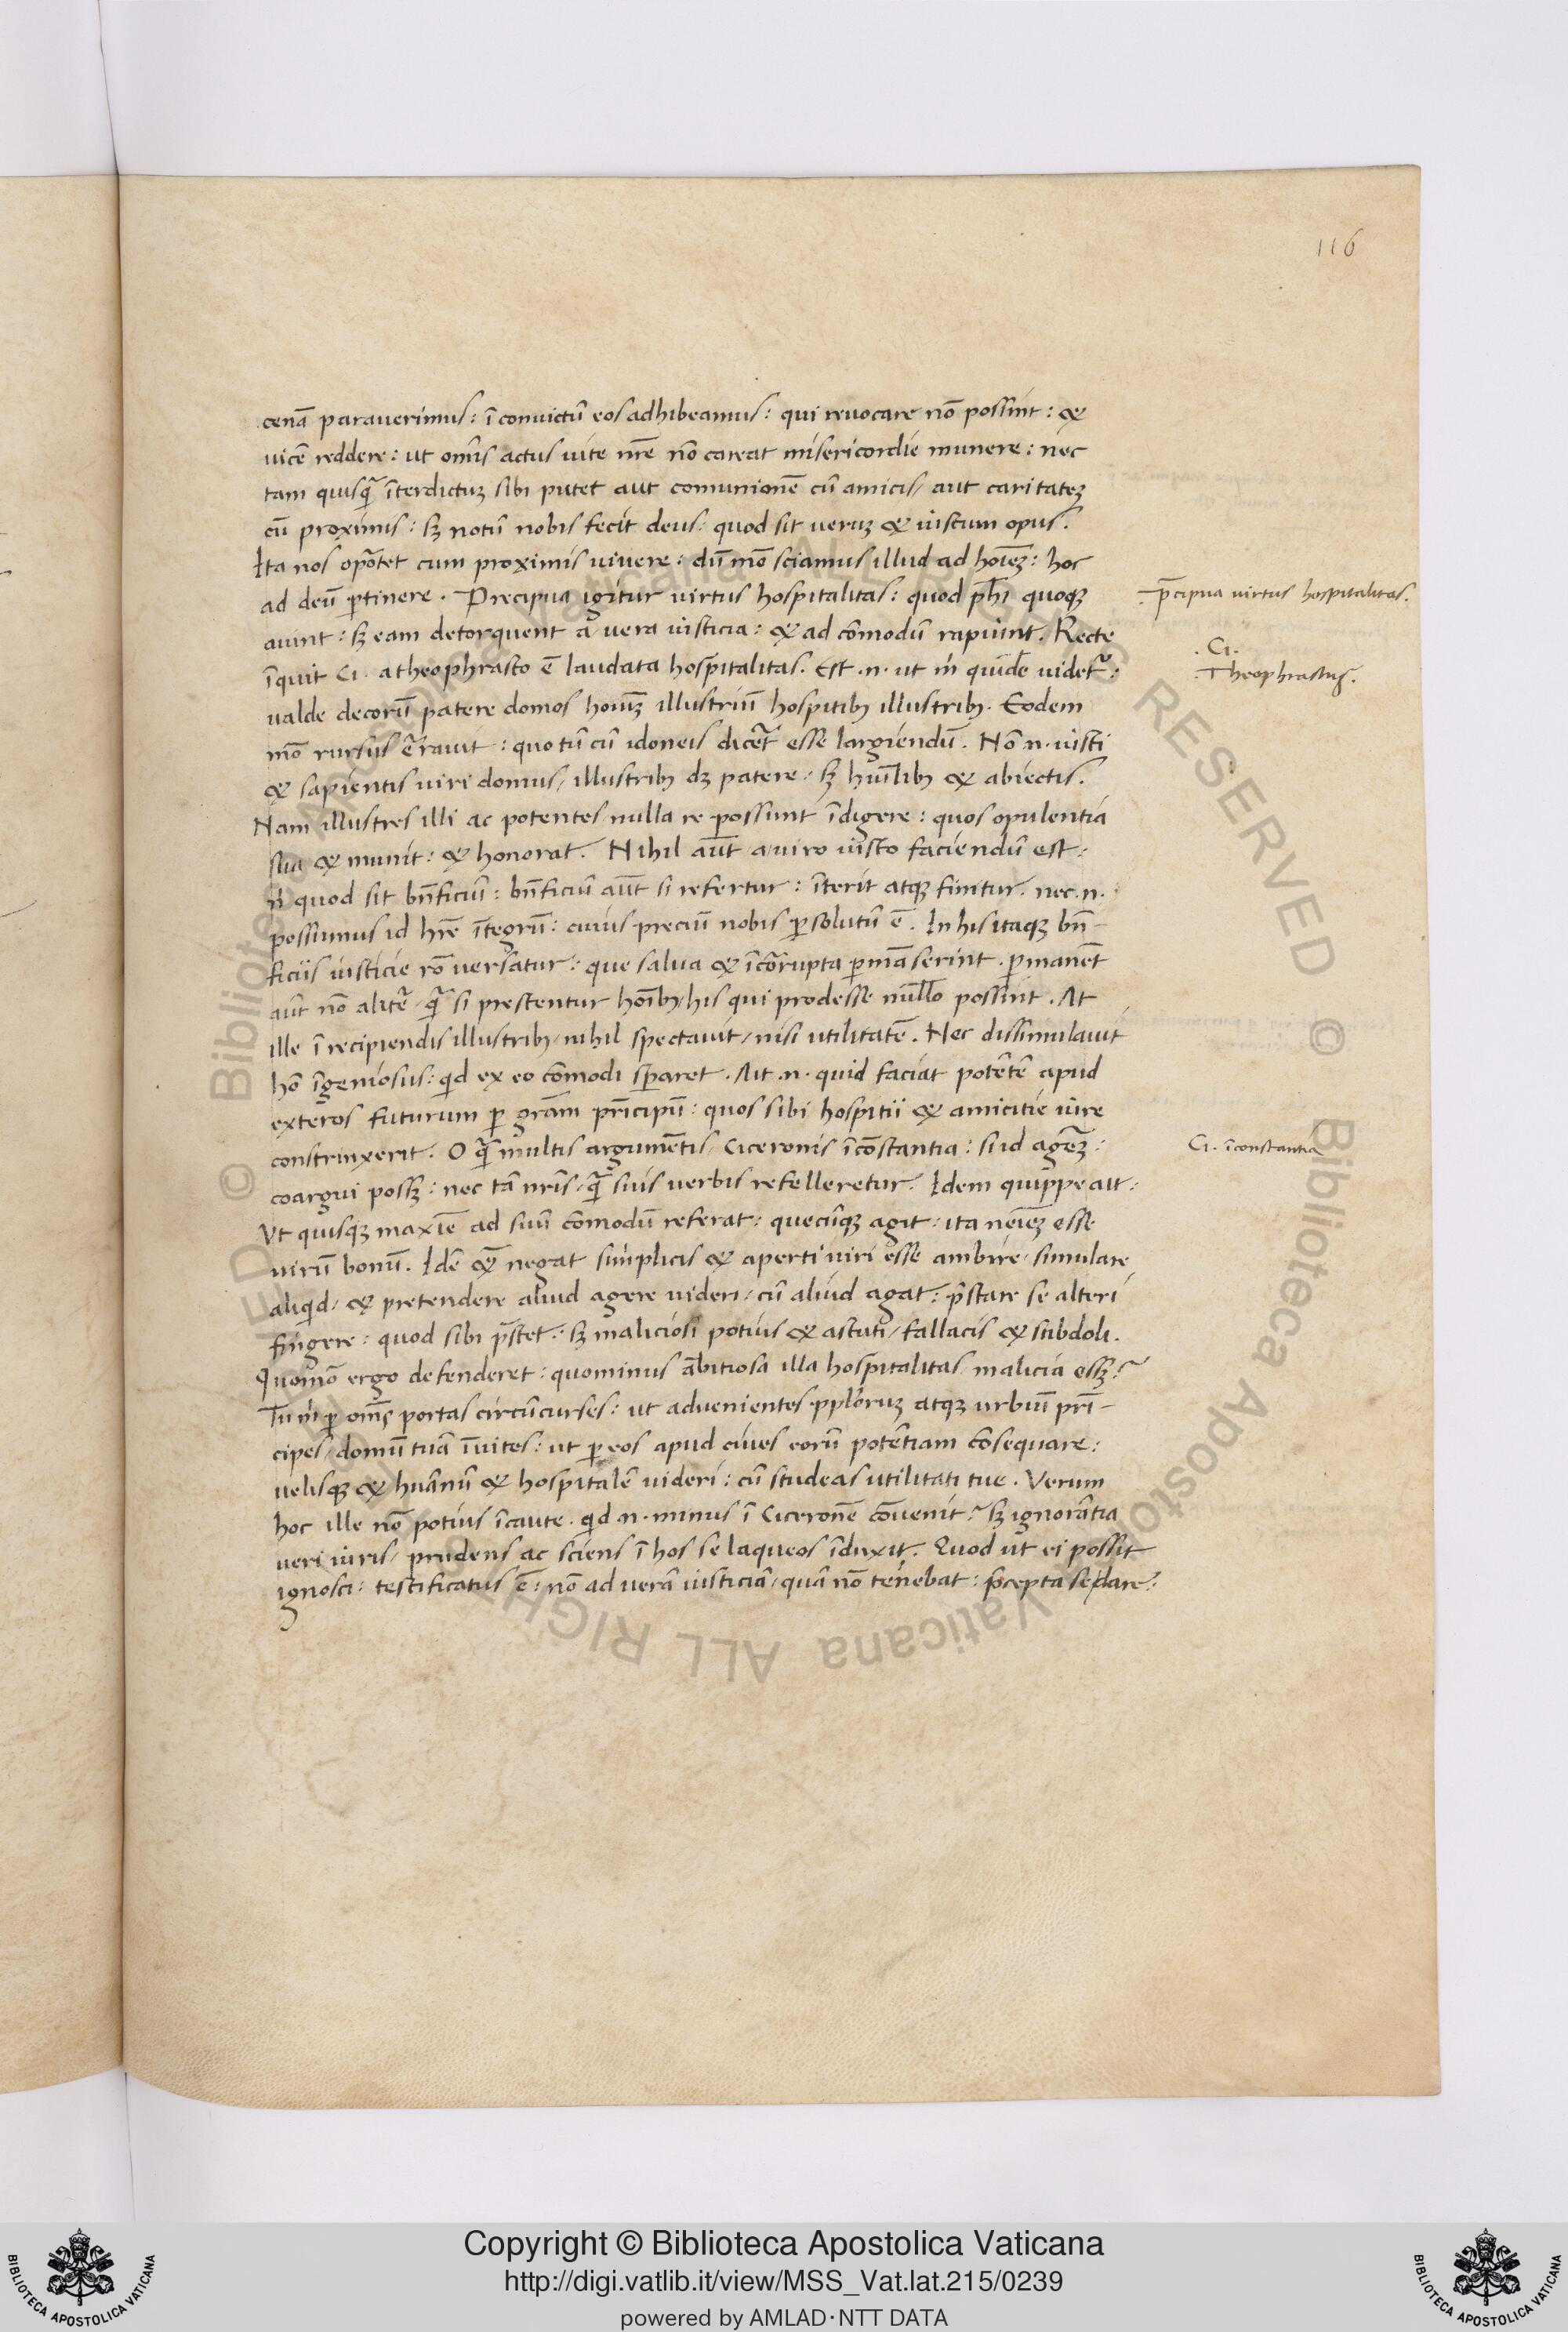 116
cenā parauerimus: ī conuictū eos adhibeamus: qui reuocare nō possint: &
uicē reddere: ut omīs actus uite nr̄e nō careat misericordie munere: nec
tam quisq̄ īterdictuȝ sibi putet aut comunionē cū amicis/ aut caritateȝ
cū proximis: sȝ notū nobis fecit deus: quod sit ueruȝ & iustum opus.
Ita nos oportet cum proximis uiuere: dūmō sciamus illud ad hoīeȝ: hoc
ad deū ꝑtinere. Precipua igitur uirtus hospitalitas: quod ph̄i quoqȝ
aiunt: sȝ eam detorquent a uera iusticia: & ad cōmodū rapiunt. Recte
īquit Ci. a theophrasto ē laudata hospitalitas. Est .n. ut m̄ quidē uidet᷑:
ualde decorū patere domos hoiūȝ illustriū hospitibȝ illustribȝ. Eodem
mō rursus erauit: quo tū cū idoneis diceret esse largiendū. Nō .n. iusti
& sapientis uiri domus/ illustribȝ dȝ patere/ sȝ hūilibȝ & abiectis.
Nam illustres illi ac potentes nulla re possunt īdigere: quos opulentia
sua & munit: & honorat. Nihil aūt a uiro iusto faciendū est:
n̄ quod sit bn̄ficiū: bn̄ficiū aūt si refertur: īterit atqȝ finitur. nec .n.
possumus id hr̄e ītegrū: cuius preciū nobis ꝑsolutū ē. In his itaqȝ bn̄-
ficiis iusticie rō uersatur: que salua & īcorrupta ꝑmāserint. ꝑmanēt
aūt nō alit᷑/ q̄ si prestentur hoībȝ/ his qui prodesse nullo possint. At
ille ī recipiendis illustribȝ/ nihil spectauit/ nisi utilitatē. Nec dissimulauit
hō īgeniosus: qid ex eo cōmodi speraret. Ait .n. quid faciat potētē apud
exteros futurum ꝑ grām prīcipū: quos sibi hospitii & amicitie iure
constrinxerit. O q̄ multis argumētis/ Ciceronis īcōstantia: si id agereȝ:
coargui possȝ: nec tā nr̄is/ q̄ suis uerbis refelleretur. Idem quippe ait:
Ut quisqȝ maxīe ad suū cōmodū referat: quecūqȝ agit: ita neīeȝ esse
uirū bonū. Idē & negat simplicis & aperti uiri esse ambire/ simulare
aliqid/ & pretendere aliud agere uideri/ cū aliud agat: p̄stare se alteri
fingere: quod sibi p̄stet: sȝ maliciosi potius & astuti/ fallacis & subdoli.
Quomō ergo defenderet: quominus ābitiosa illa hospitalitas malicia essȝ?
Tu m̄ ꝑ omēs portas circūcurses: ut aduenientes ppl̄oruȝ atqȝ urbiū prī-
cipes/ domū tuā īuites: ut ꝑ eos apud ciues eorū potētiam cōsequare:
uelisqȝ & huānū & hospitalē uideri: cū studeas utilitati tue. Verum
hoc ille nō potius īcaute. qid .n. minus ī Ciceronē cōuenit? sȝ ignorātia
ueri iuris/ prudens ac sciens ī hos se laqueos īduxit. Quod ut ei possit
ignosci: testificatus ē: nō ad uerā iusticiā/ quā nō tenebat: p̄cepta se dare:
p̄cipua uirtus hospitalitas.
.Ci.
Theophrastus.
Ci. īconstantia
Copyright © Biblioteca Apostolica Vaticana
http://digi.vatlib.it/view/MSS_Vat.lat.215/0239
powered by AMLAD·NTT DATA
BIBLIOTECA APOSTOLICA VATICANA
BIBLIOTECA APOSTOLICA VATICANA